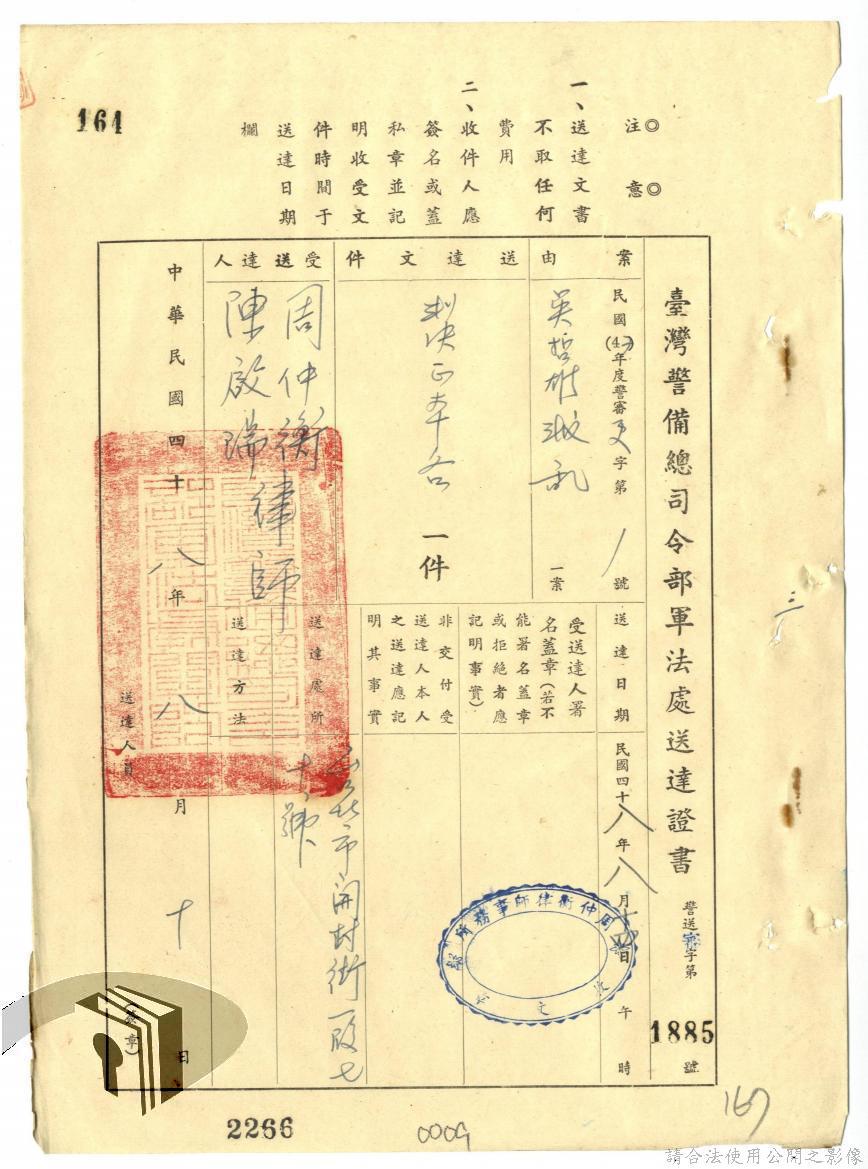 164
◎注意◎
一、送達文書
不取任何
費用
二、收件人應
簽名或蓋
私章並記
明收受文
件時間于
送達日期
欄
臺灣警備總司令部軍法處送達證書
警送審字第
1885
號
案由
民國(47)年度警審更字第1號
吳哲雄叛乱
一案
送達文件
判決正本各
一件
受送達人
周仲衡律師
陳啟瑞
送達日期
民國四十八年八月十
日午時
受送達人署
名蓋章(若不
能署名蓋章
或拒絕者應
記明事實)
非交付受
送達人本人
之送達應記
明其事實
送達處所
台北市開封街一段七
十號
送達方法
中華民國四十八年八月十日
送達人員
(簽章)
周仲衡律師事務所
收文
三
2266
0009
167
請合法使用公開之影像